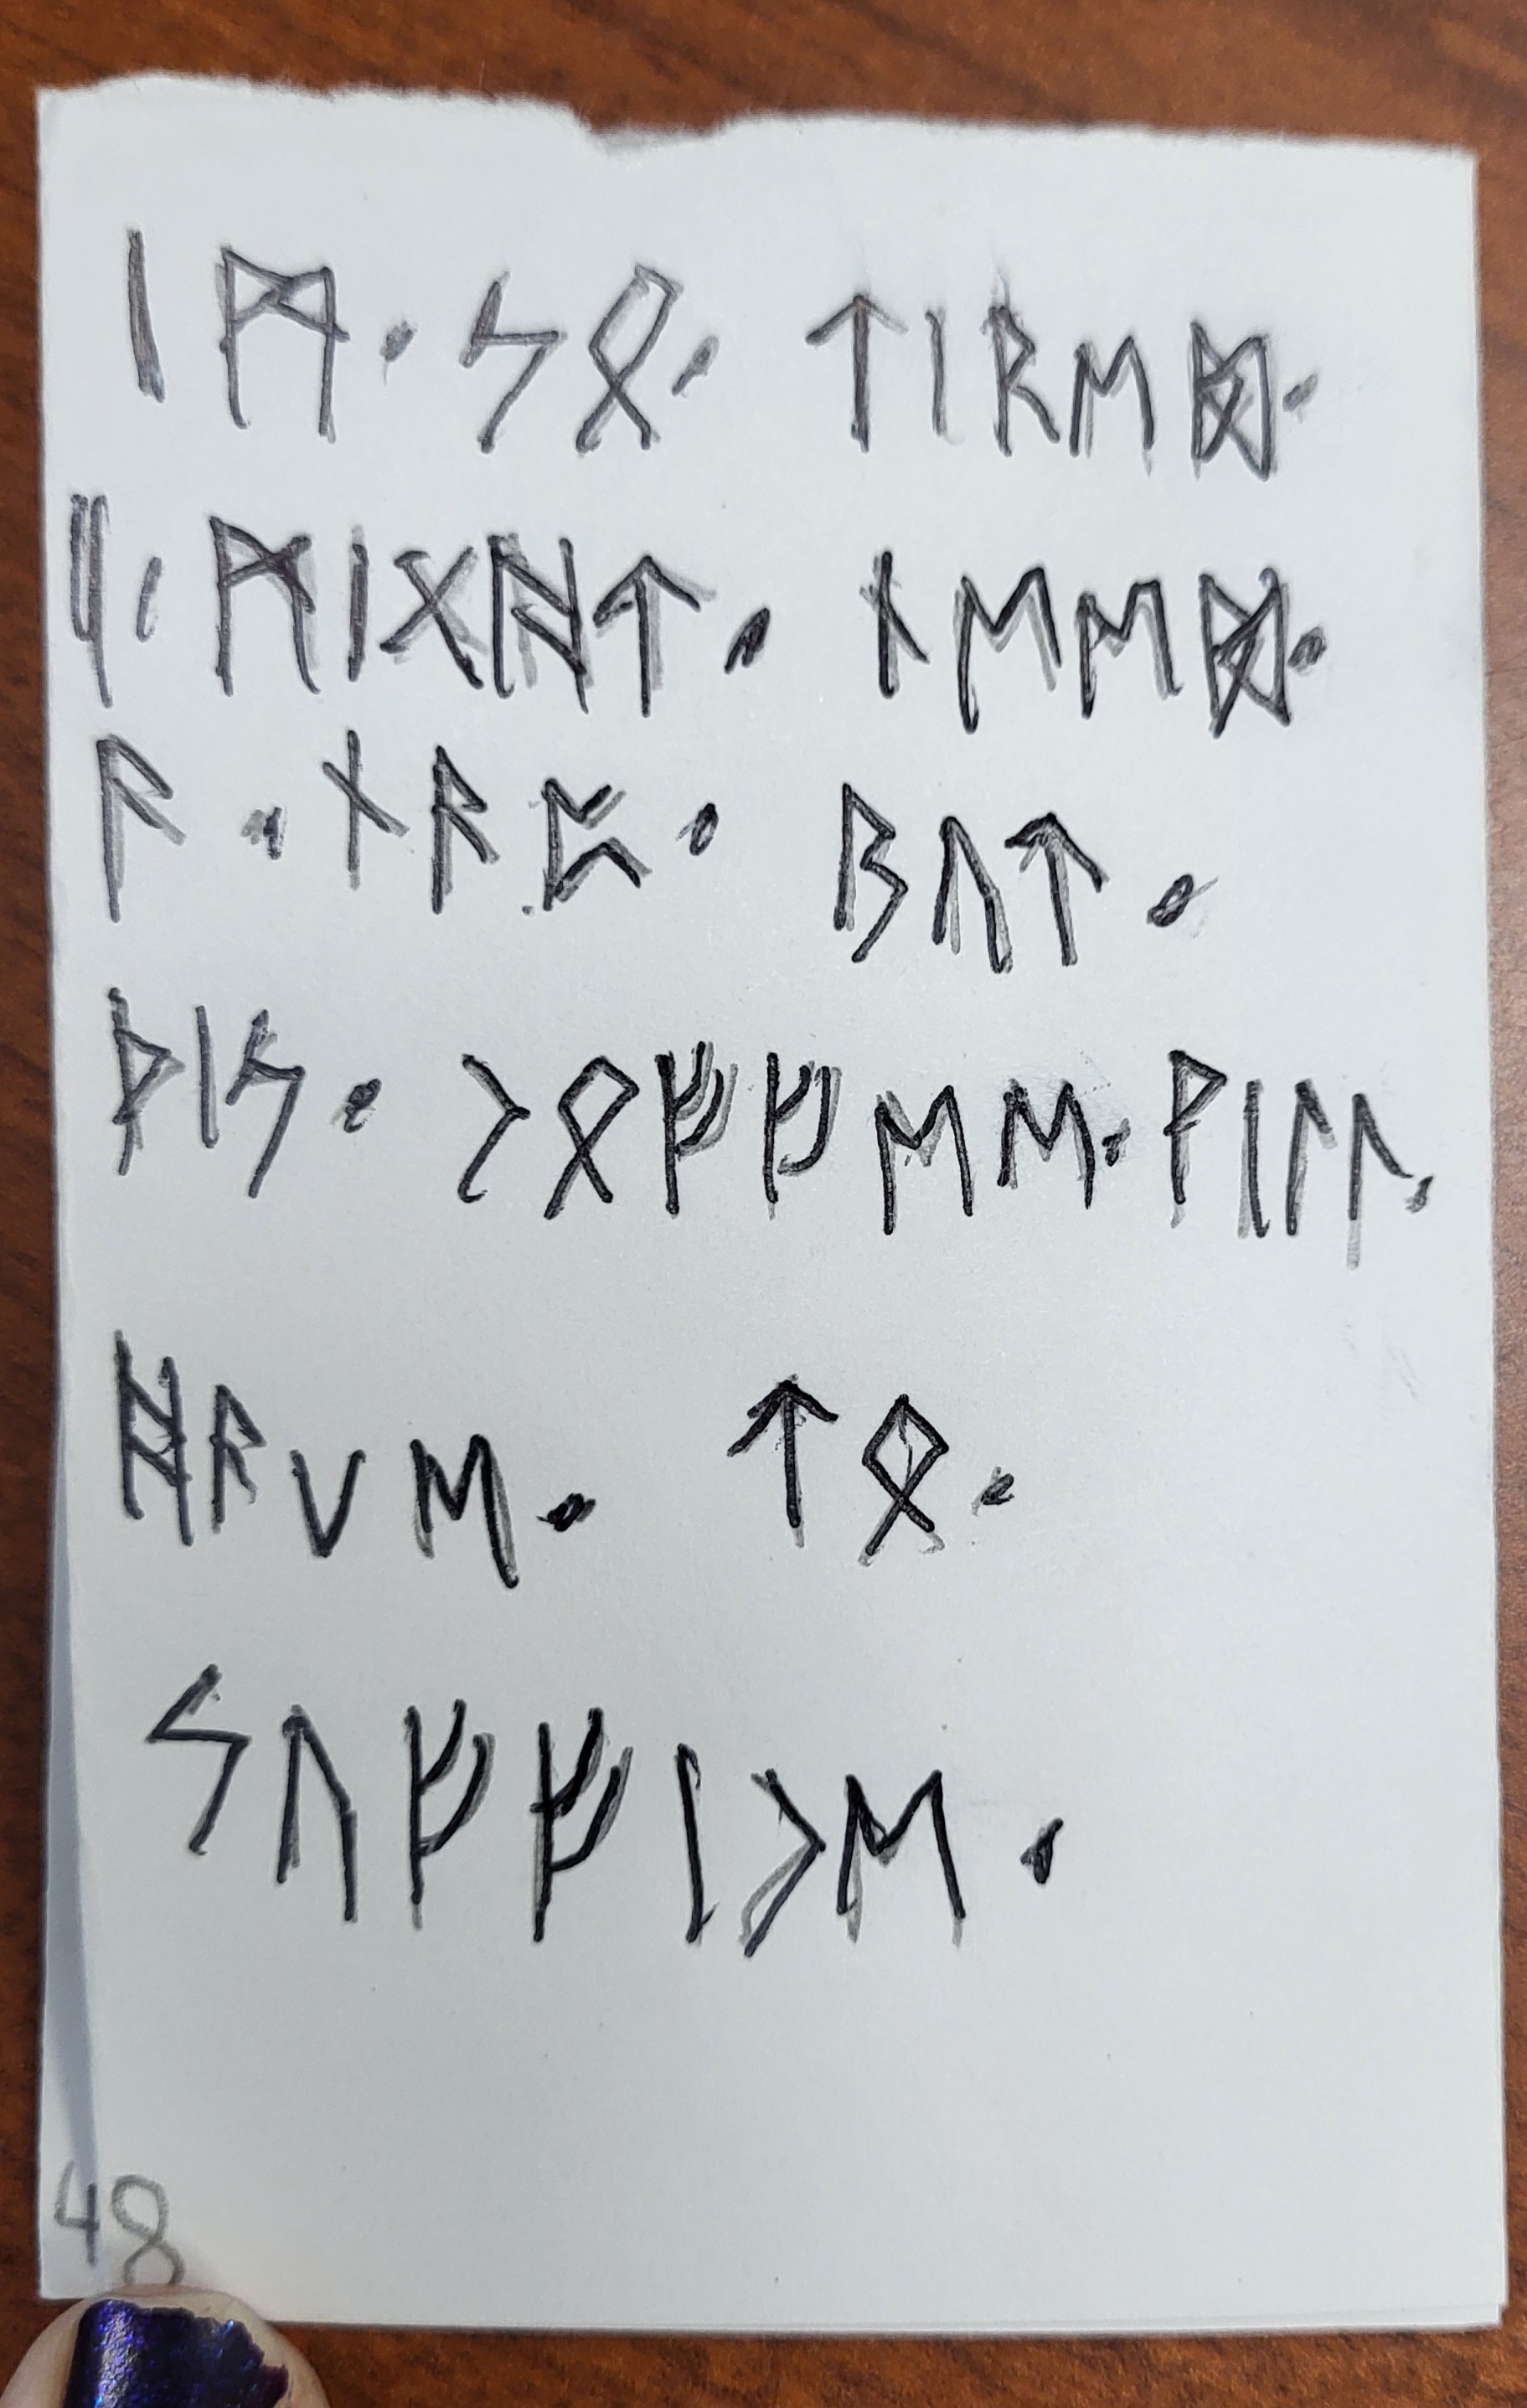 ᛁᛗ·ᛋᛟ·ᛏᛁᚱᛖᛞ·
ᛁ·ᛗᛁᚷᚺᛏ·ᚾᛖᛖᛞ·
ᚨ·ᚾᚨᛈ·ᛒᚢᛏ·
ᚦᛁᛋ·ᚲᛟᚠᚠᛖᛖ·ᚹᛁᛚᛚ·
ᚺᚨVᛖ·ᛏᛟ·
ᛋᚢᚠᚠᛁᚲᛖ·
48